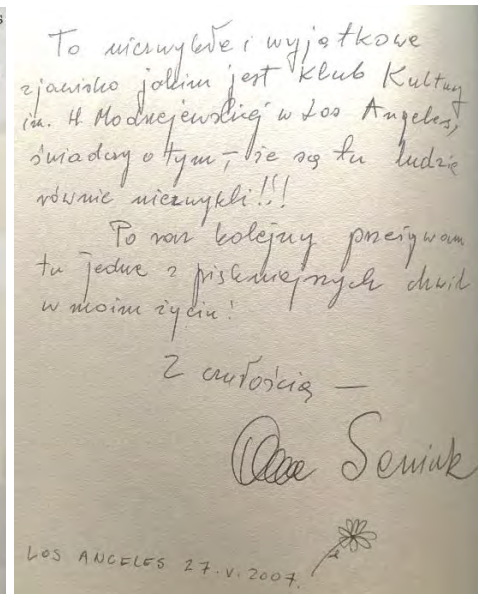 To niezwykłe i wyjątkowe
zjawisko jakim jest Klub Kultury
im. H. Modrzejewskiej w Los Angeles,
świadczy o tym, – że są tu ludzie
równie niezwykli!!!
Po raz kolejny przeżywam
tu jedne z piękniejszych chwil
w moim życiu!
Z czułością —
Anna Seniuk
LOS ANGELES 27.V.2007.